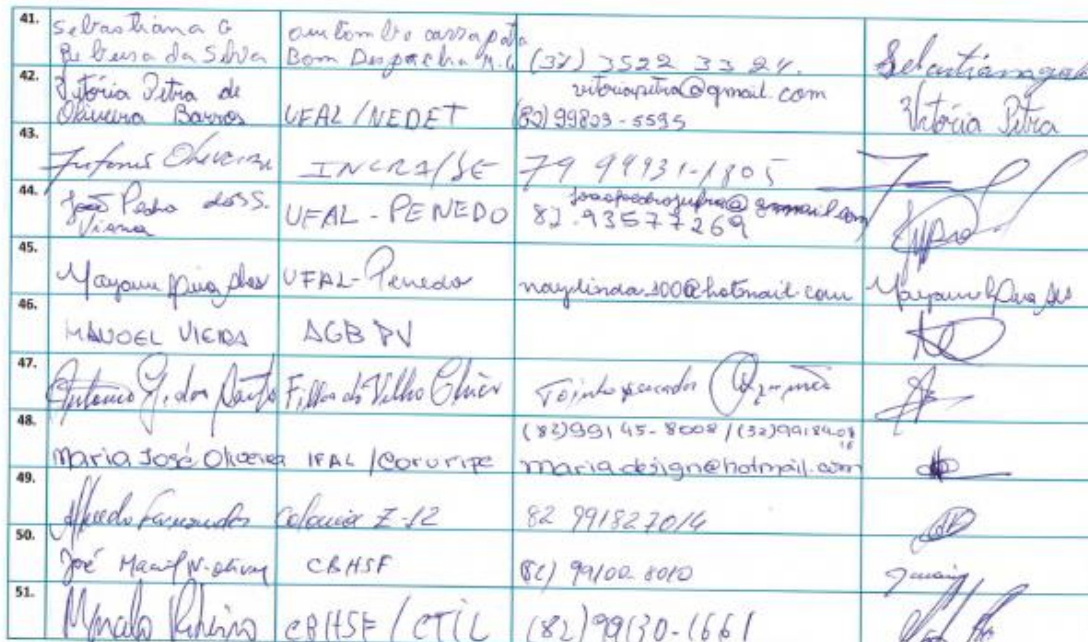 41. Sebastiana G
Geteusa da Silva
quilombo carrapato
Bom Despacho M.G
(37) 3522 33 24.
42. Vitória Petra de
Oliveira Barros
UFAL/NEDET
vitoriapetra@gmail.com
(82) 99803-5595
Vitória Petra
43. Oliveira
INCRA/SE
79 99931-1805
44. João Pedro dos S.
Viana
UFAL-PENEDO
82.93577269
45. Mayane
UFAL-Penedo
naylinda.100@hotmail.com
Mayane
46. MANOEL VIEIRA
AGB PV
47. Antonio G. dos Santos
Filhos do Velho Chico
Toinho pescador
48. Maria José Oliveira
IFAL/Coruripe
(82)99145-8008 / (32)99184-08
16
maria.design@hotmail.com
49. Alfredo Fernandes
Colonia Z-12
82 991827014
50. José Maciel N. Oliveira
CBHSF
(82) 99100-8010
51. Ribeiro
CBHSF / CTIL
(82) 99130-1661